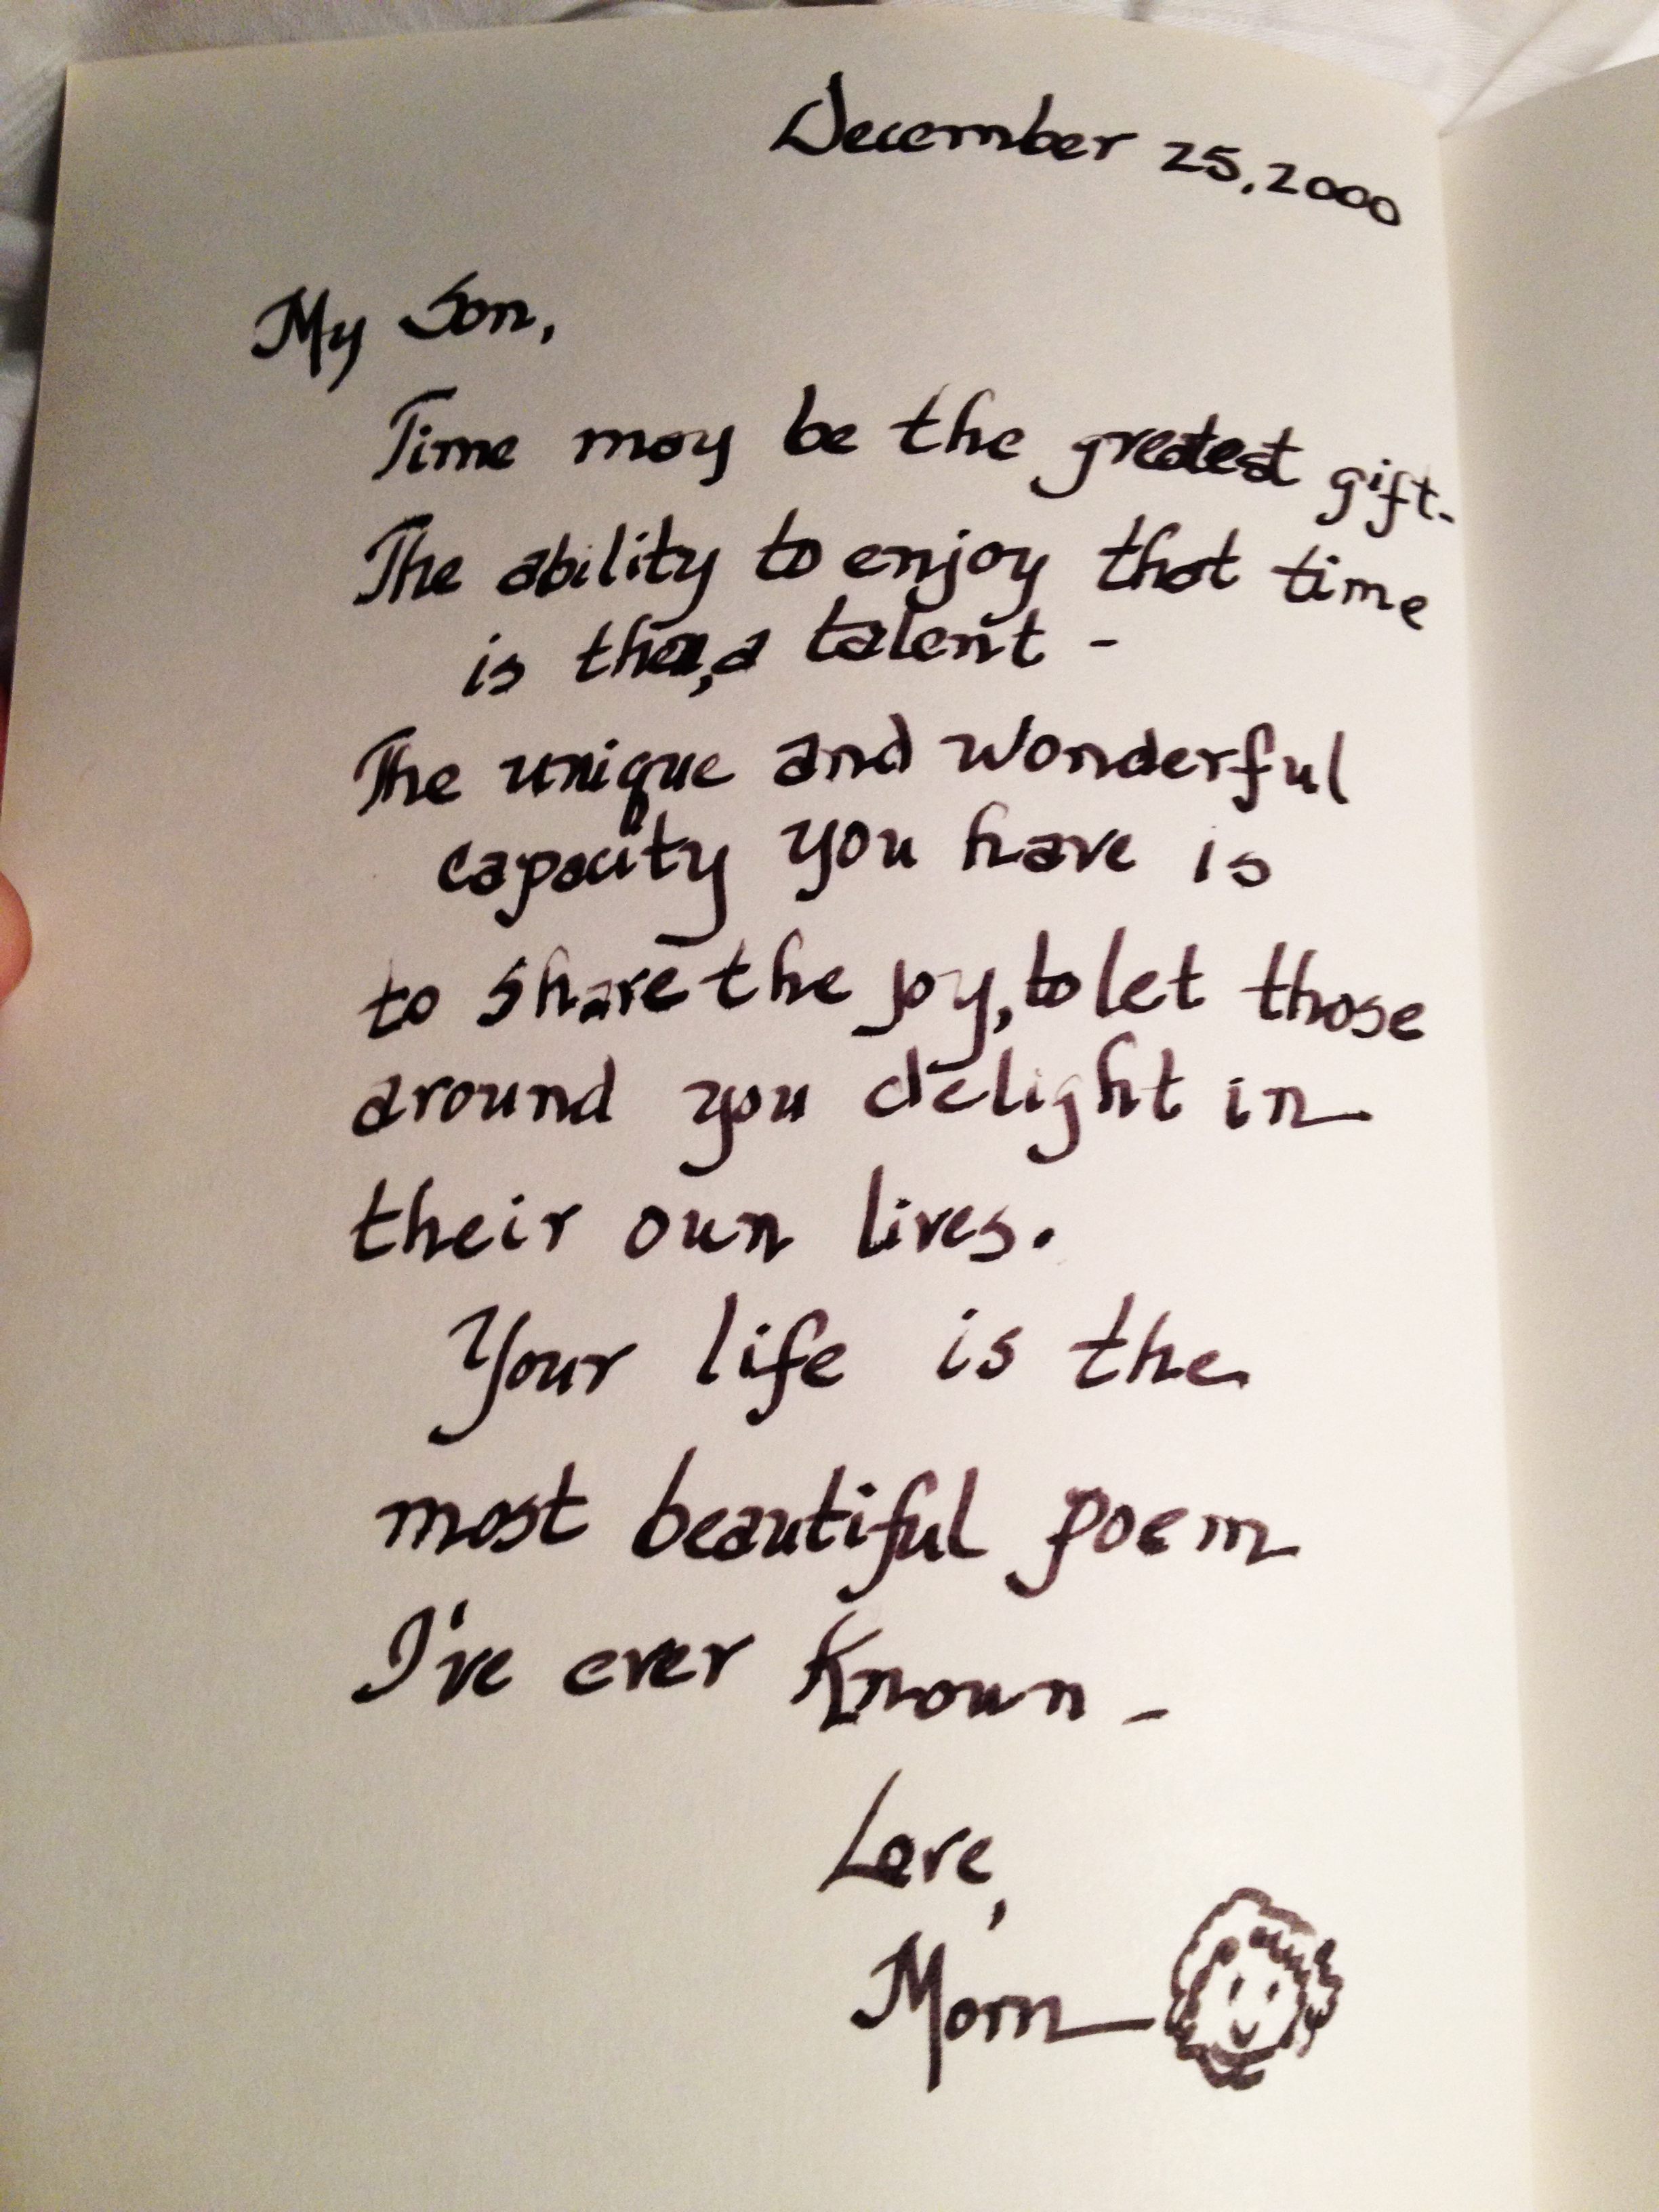 December 25, 2000
My Son,
Time may be the greatest gift.
The ability to enjoy that time
is then, a talent -
The unique and wonderful
capacity you have is
to share the joy, to let those
around you delight in
their own lives.
Your life is the
most beautiful poem
I've ever known -
Love,
Mom